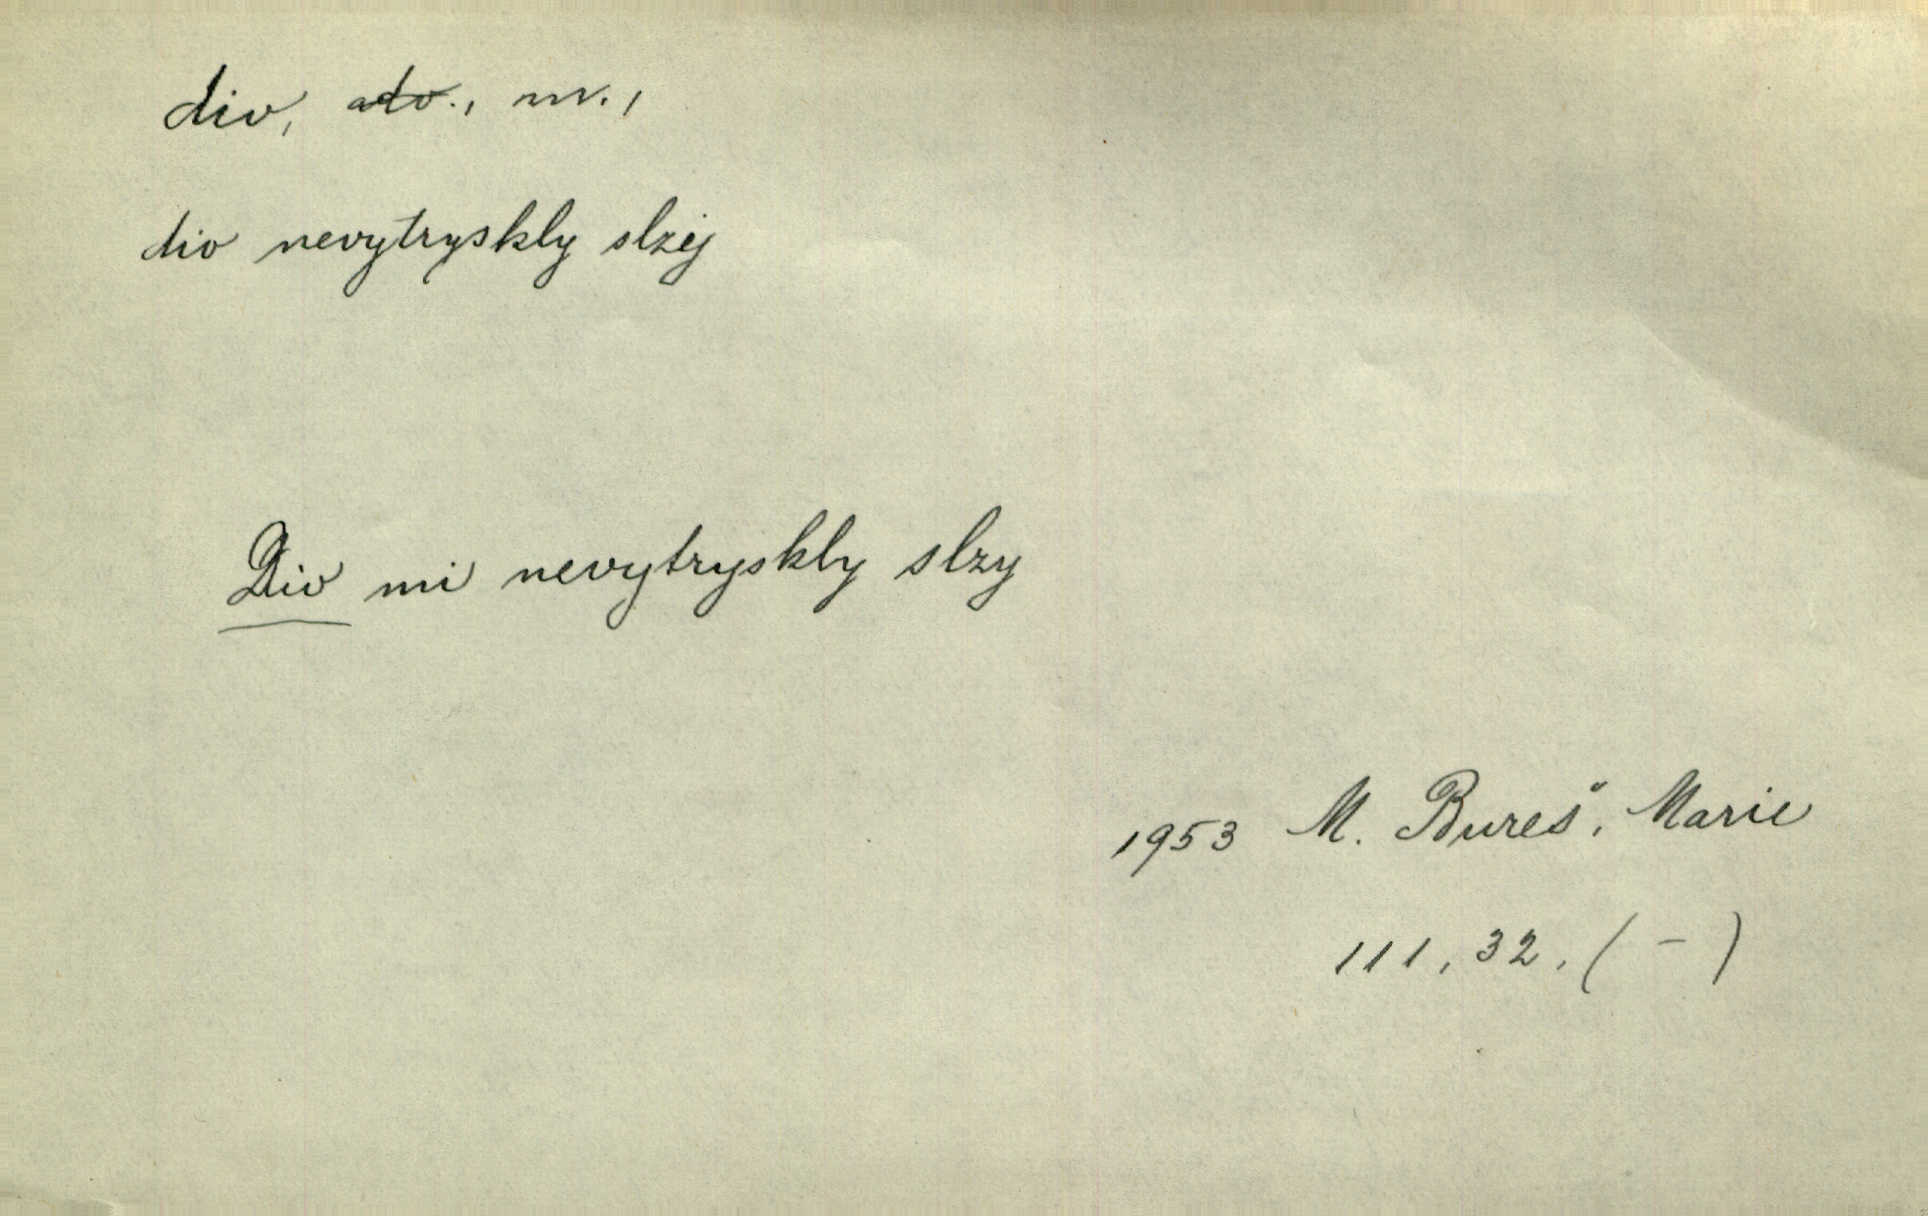 div, adv., nv.,
div nevytryskly slzy
Div mi nevytryskly slzy
1953 M. Bureš, Marie
111, 32, ( - )